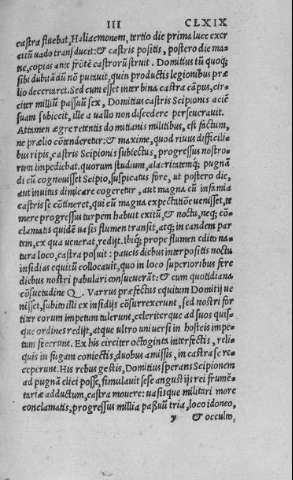 III CLXIX
castra fluebat, Haliacmonem, tertio die prima luce exer
citũ uado transducit: & castris positis, postero die ma
ne, copias ante frõtẽ castrorũ struit. Domitius tũ quoq;
sibi dubitãdũ nõ putauit, quin productis legionibus præ
lio decertaret. Sed cum esset inter bina castra cãpus, cir
citer milliũ passuũ sex, Domitius castris Scipionis aciẽ
suam subiecit, ille a uallo non discedere perseuerauit.
Attamen ægre retentis domitianis militibus, est factum,
ne prælio cõtenderetur: & maxime, quod riuus difficili
bus ripis, castris Scipionis subiectus, progressus nostro
rum impediebat. quorum studium, alacritatemq; pugnã
di cũ cognouisset Scipio, suspicatus fore, ut postero die,
aut inuitus dimicare cogeretur, aut magna cũ infamia
castris se cõtineret, qui cũ magna expectatiõe uenisset, te
mere progressus turpem habuit exitũ, & noctu, neq; cõ
clamatis quidẽ uasis flumen transit, atq; in eandem par
tem, ex qua uenerat, redijt. ibiq; prope flumen edito na
tura loco, castra posuit: paucis diebus interpositis noctu
insidias equitũ collocauit, quo in loco superioribus fere
diebus nostri pabulari consueuerãt: & cum quotidiana
cõsuetudine Q. Varrus præfectus equitum Domitij ue
nisset, subito illi ex insidijs cõsurrexerunt, sed nostri for
titer eorum impetum tulerunt, celeriterque ad suos quisq
que ordines redijt, atque ultro uniuersi in hosteis impe
tum fecerunt. Ex his circiter octoginta interfectis, reli
quis in fugam coniectis, duobus amissis, in castra se re
ceperunt. His rebus gestis, Domitius sperans Scipionem
ad pugnã elici posse, simulauit sese angustijs rei frumẽ
tariæ adductum, castra mouere: uasisque militari more
conclamatis, progressus millia passuũ tria, loco idoneo,
y & occulto,